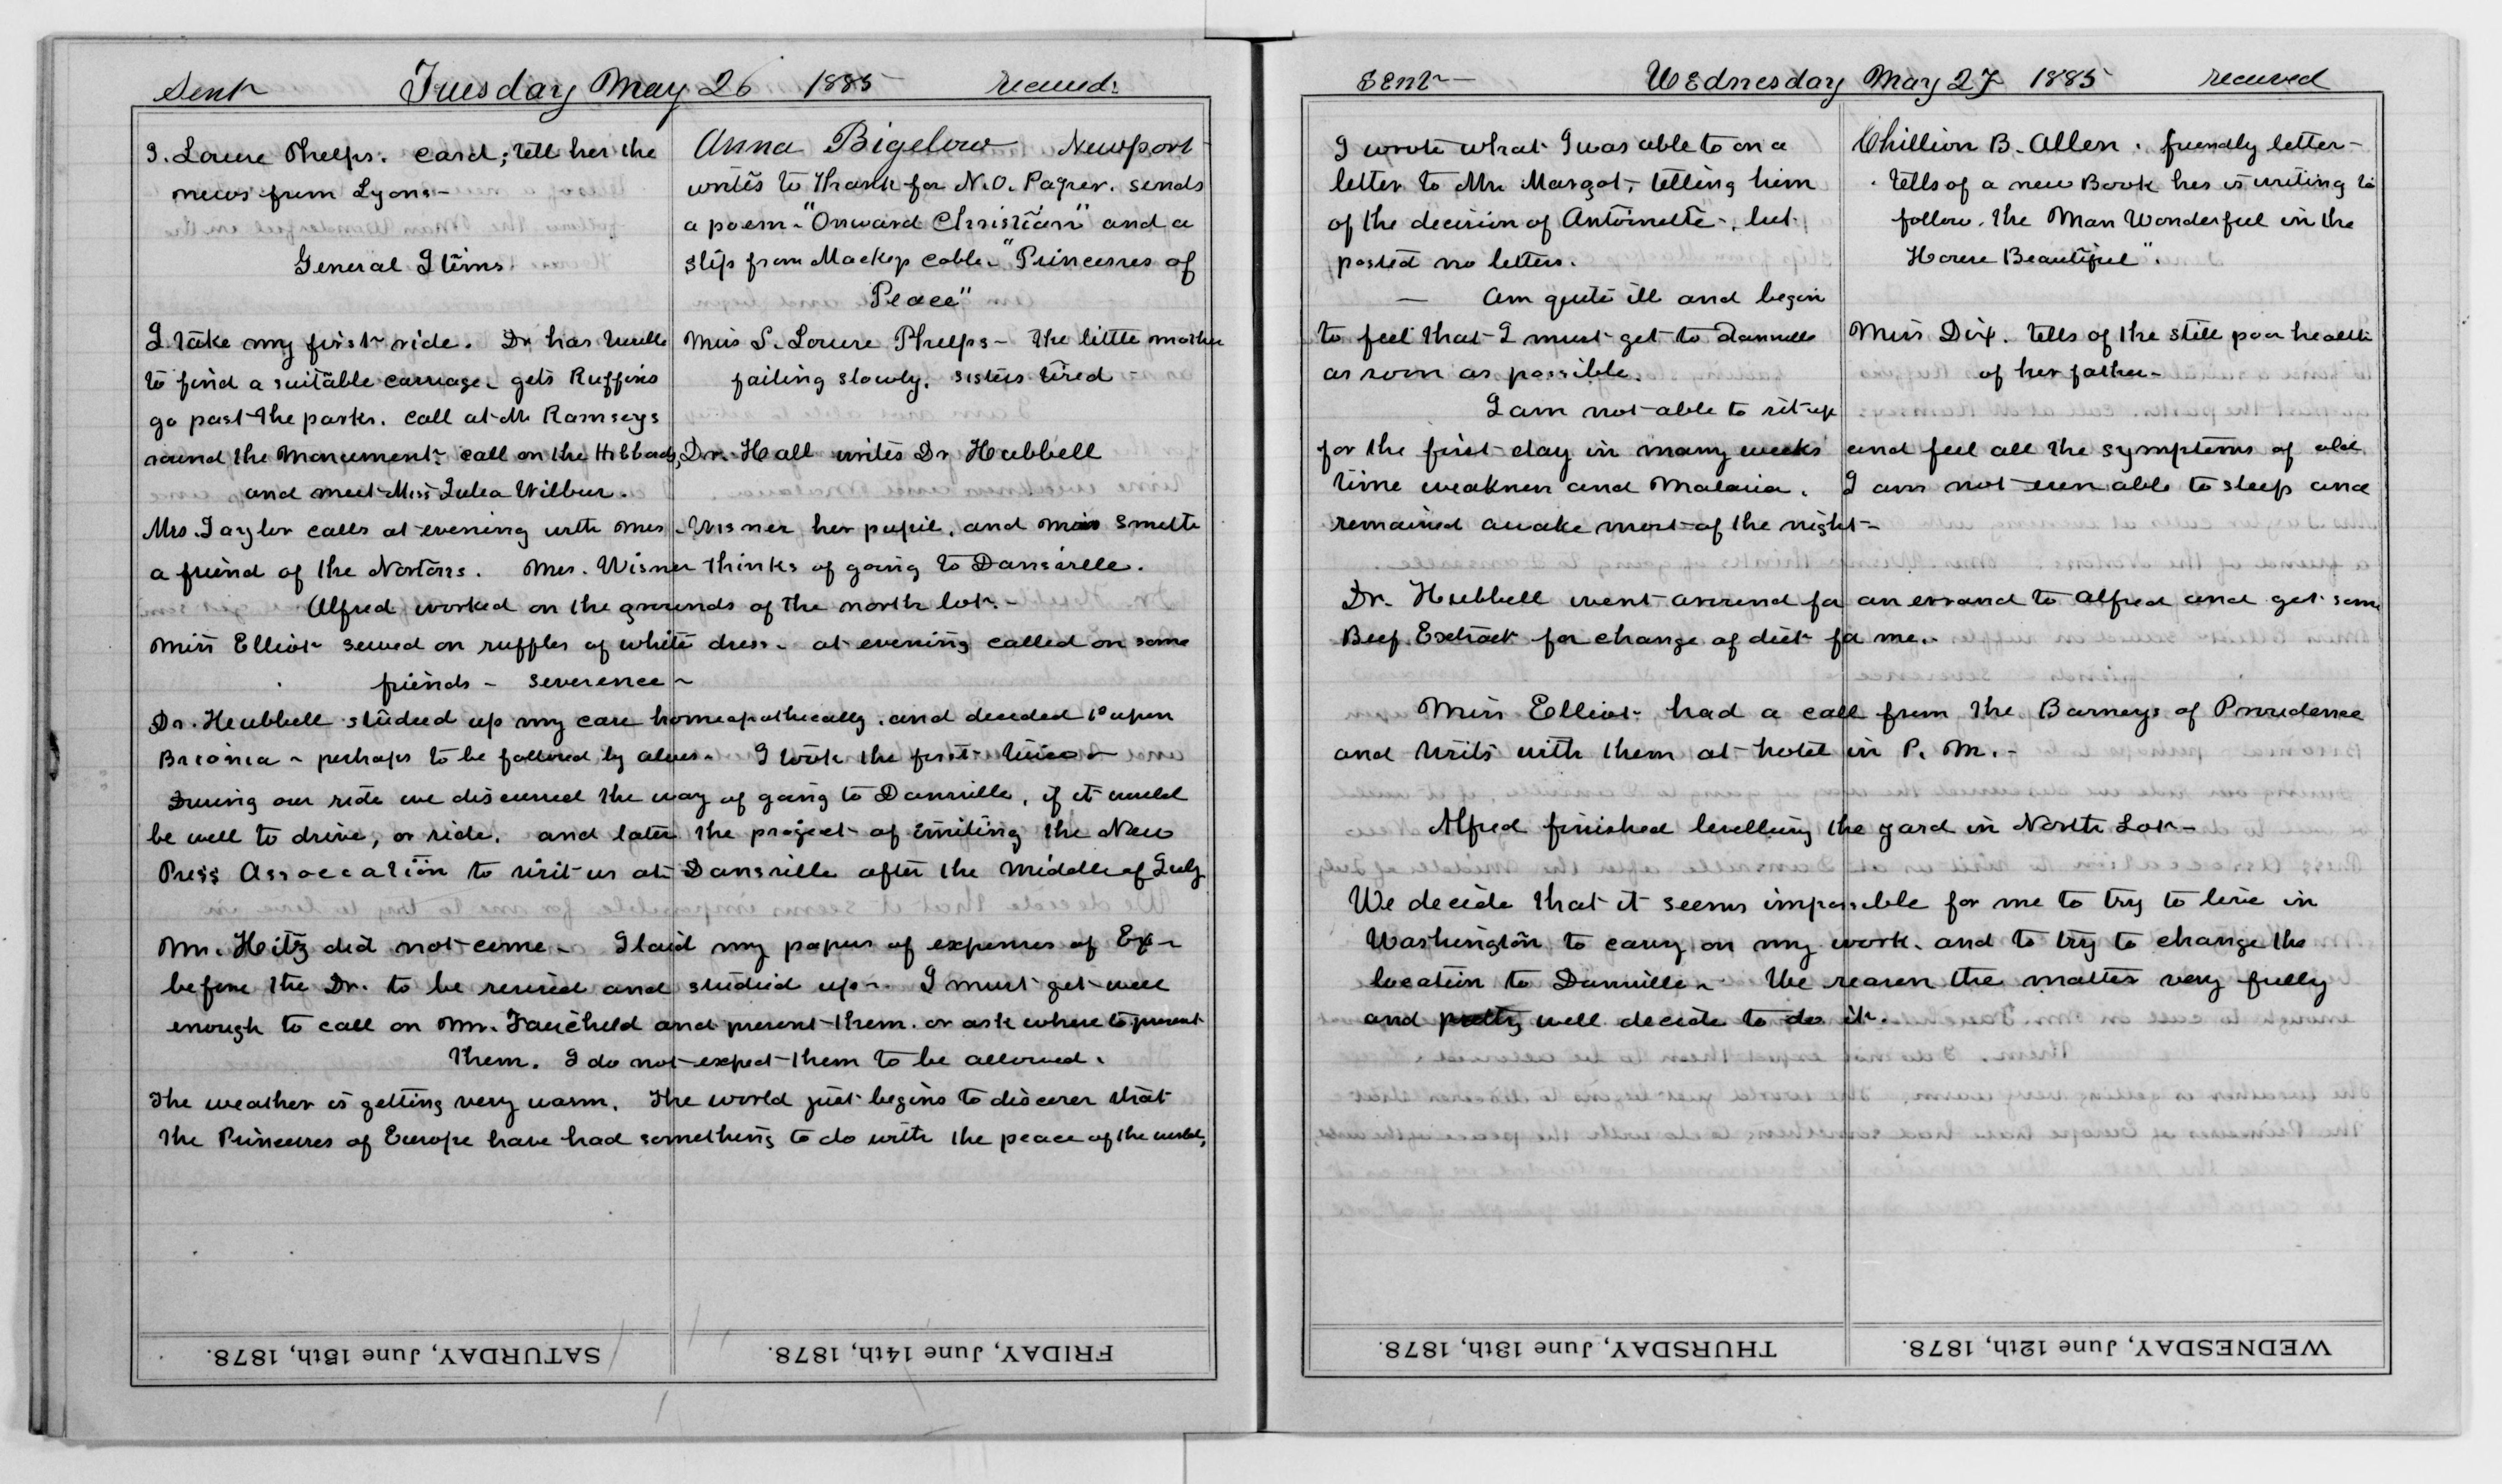 Sent Tuesday May 26 1885 received.
S. Louise Phelps. card; tell her the
news from Lyons-
General Items.
Anna Bigelow Newport
writes to thank for N.O. Paper. sends
a poem - "Onward Christian" and a
slip from Mackey cable - "Princesses of
Peace"
Miss S. Louise Phelps - The little mother
failing slowly, sisters tired -
Dr. Hall writes Dr Hubbell
I take my first ride. Dr has trouble
to find a suitable carriage - gets Ruffins
go past the parks. call at Mr Ramseys
round the Monument - call on the Hibbads,
and meet Miss Julia Wilbur.
Mrs. Taylor calls at evening with Mrs. Wisner her pupil, and Miss Smith
a friend of the Nortons. Mrs. Wisner thinks of going to Dansville.
Alfred worked on the grounds of the north lot. -
Miss Elliot sewed on ruffles of white dress - at evening called on some
friends - Severence -
Dr. Hubbell studied up my case homeopathically. and decided to upon
Brionia - perhaps to be followed by aloes. I took the first
During our ride we discussed the way of going to Dansville, if it would
be well to drive, or ride. and later the project of inviting the New
Press Association to visit us at Dansville after the middle of July
Mr. Hitz did not come - I laid my papers of expenses of Ex -
before the Dr. to be revised and studied up -. I must get well
enough to call on Mr. Fairchild and present them. or ask where to present
them. I do not expect them to be allowed.
The weather is getting very warm. The world just begins to discover that
the Princesses of Europe have had something to do with the peace of the world,
SATURDAY, June 15th, 1878.
FRIDAY, June 14th, 1878.
Sent - Wednesday May 27 1885 received
I wrote what I was able to on a
letter to Mr Margot, telling him
of the decision of Antoinette -, but
posted no letters.
- Am quite ill and begin
to feel that I must get to Dansville
as soon as possible.
Chillion B. Allen. friendly letter -
tells of a new Book hes is writing to
follow. the Man Wonderful in the
House Beautiful".
Miss Dix. tells of the still poor health
of her father -
I am not able to sit up
for the first day in many weeks and feel all the symptoms of old
time weakness and Malaria. I am not even able to sleep and
remained awake most of the night -
Dr. Hubbell went around for an errand to Alfred and get some
Beef. Extract for change of diet for me. -
Miss Elliot - had a call from the Barneys of Providence
and visits with them at hotel in P. M. -
Alfred finished levelling the yard in North Lot -
We decide that it seems impossible for me to try to live in
Washington to carry on my work. and to try to change the
location to Dansville - We reason the matter very fully
and pretty well decide to do it.
THURSDAY, June 13th, 1878.
WEDNESDAY, June 12th, 1878.